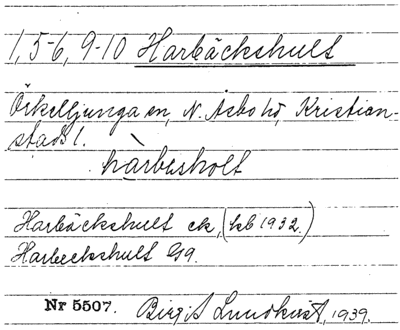 1, 5-6, 9-10 Harbäckshult
Örkelljunga sn, N. Åsbo hd, Kristian-
stads l.
hàrbəsholt
Harbäckshult ek, (kb 1932.)
Harbeckshult G9.
Nr 5507. Birgit Lundkvist, 1939.